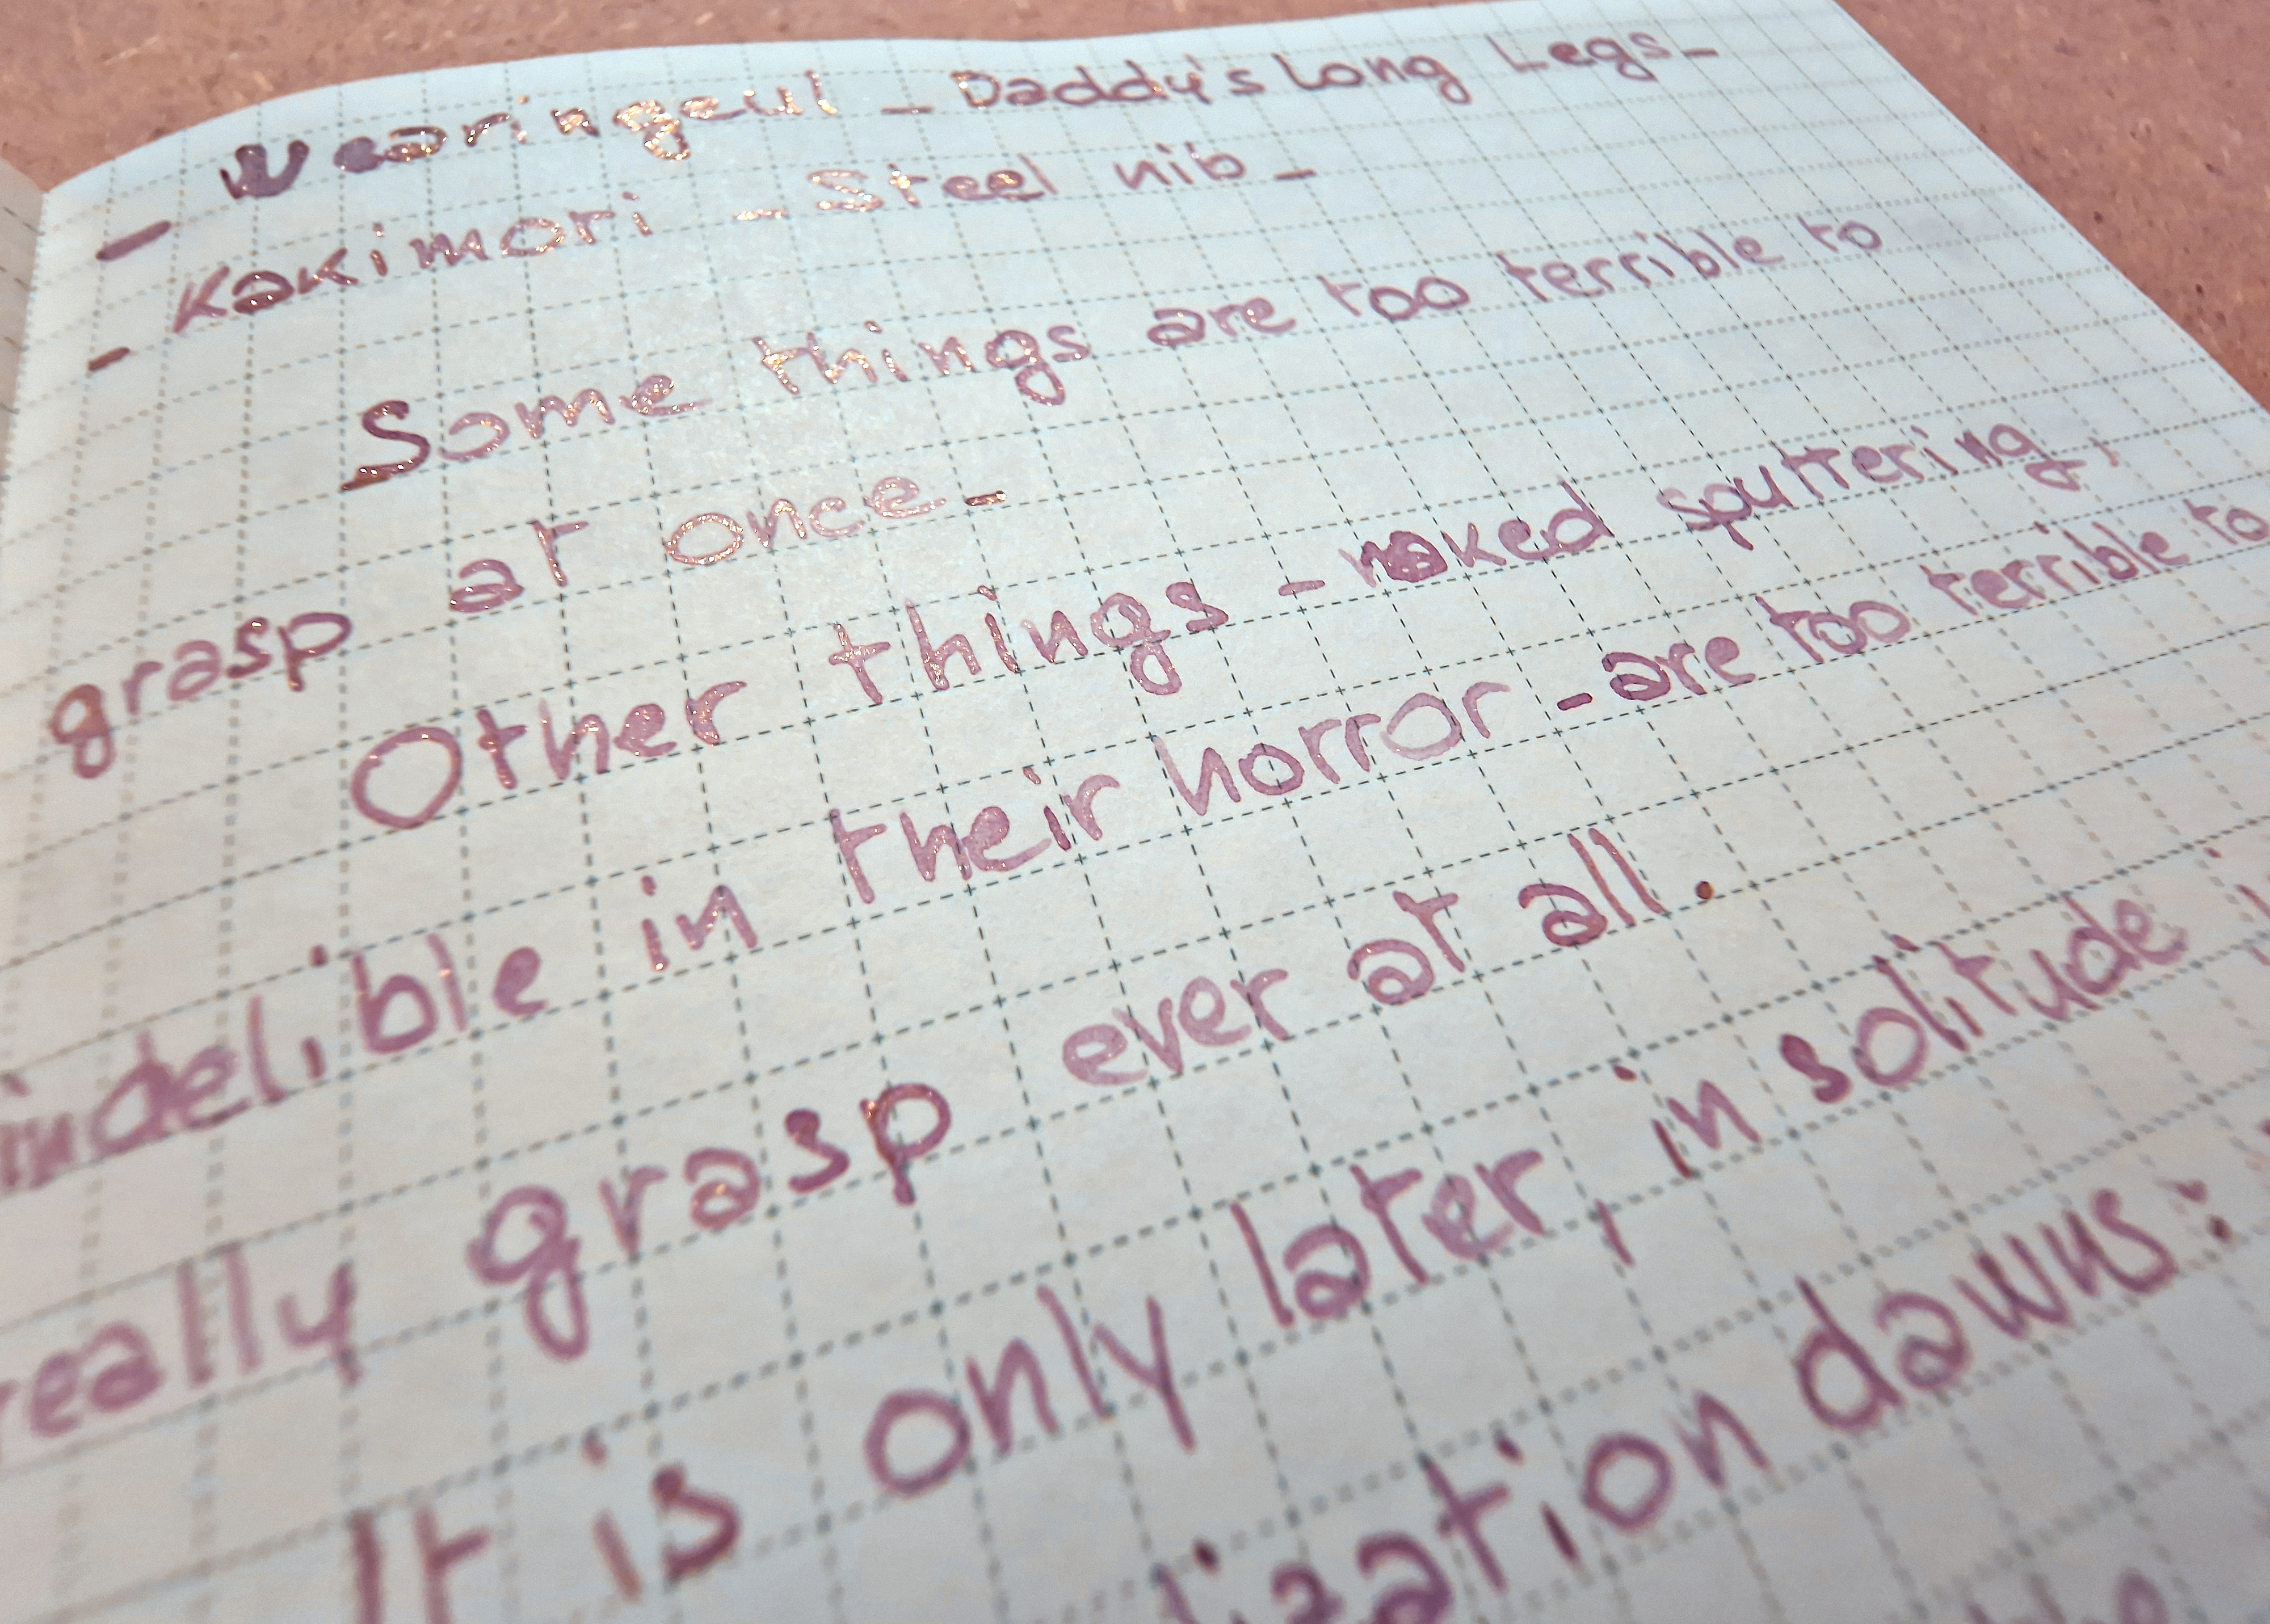 - Wearingeul - Daddy's Long Legs -
- Kakimori - Steel nib -
Some things are too terrible to
grasp at once -
Other things - naked sputtering,
indelible in their horror - are too terrible to
really grasp ever at all.
It is only later, in solitude
dawns: